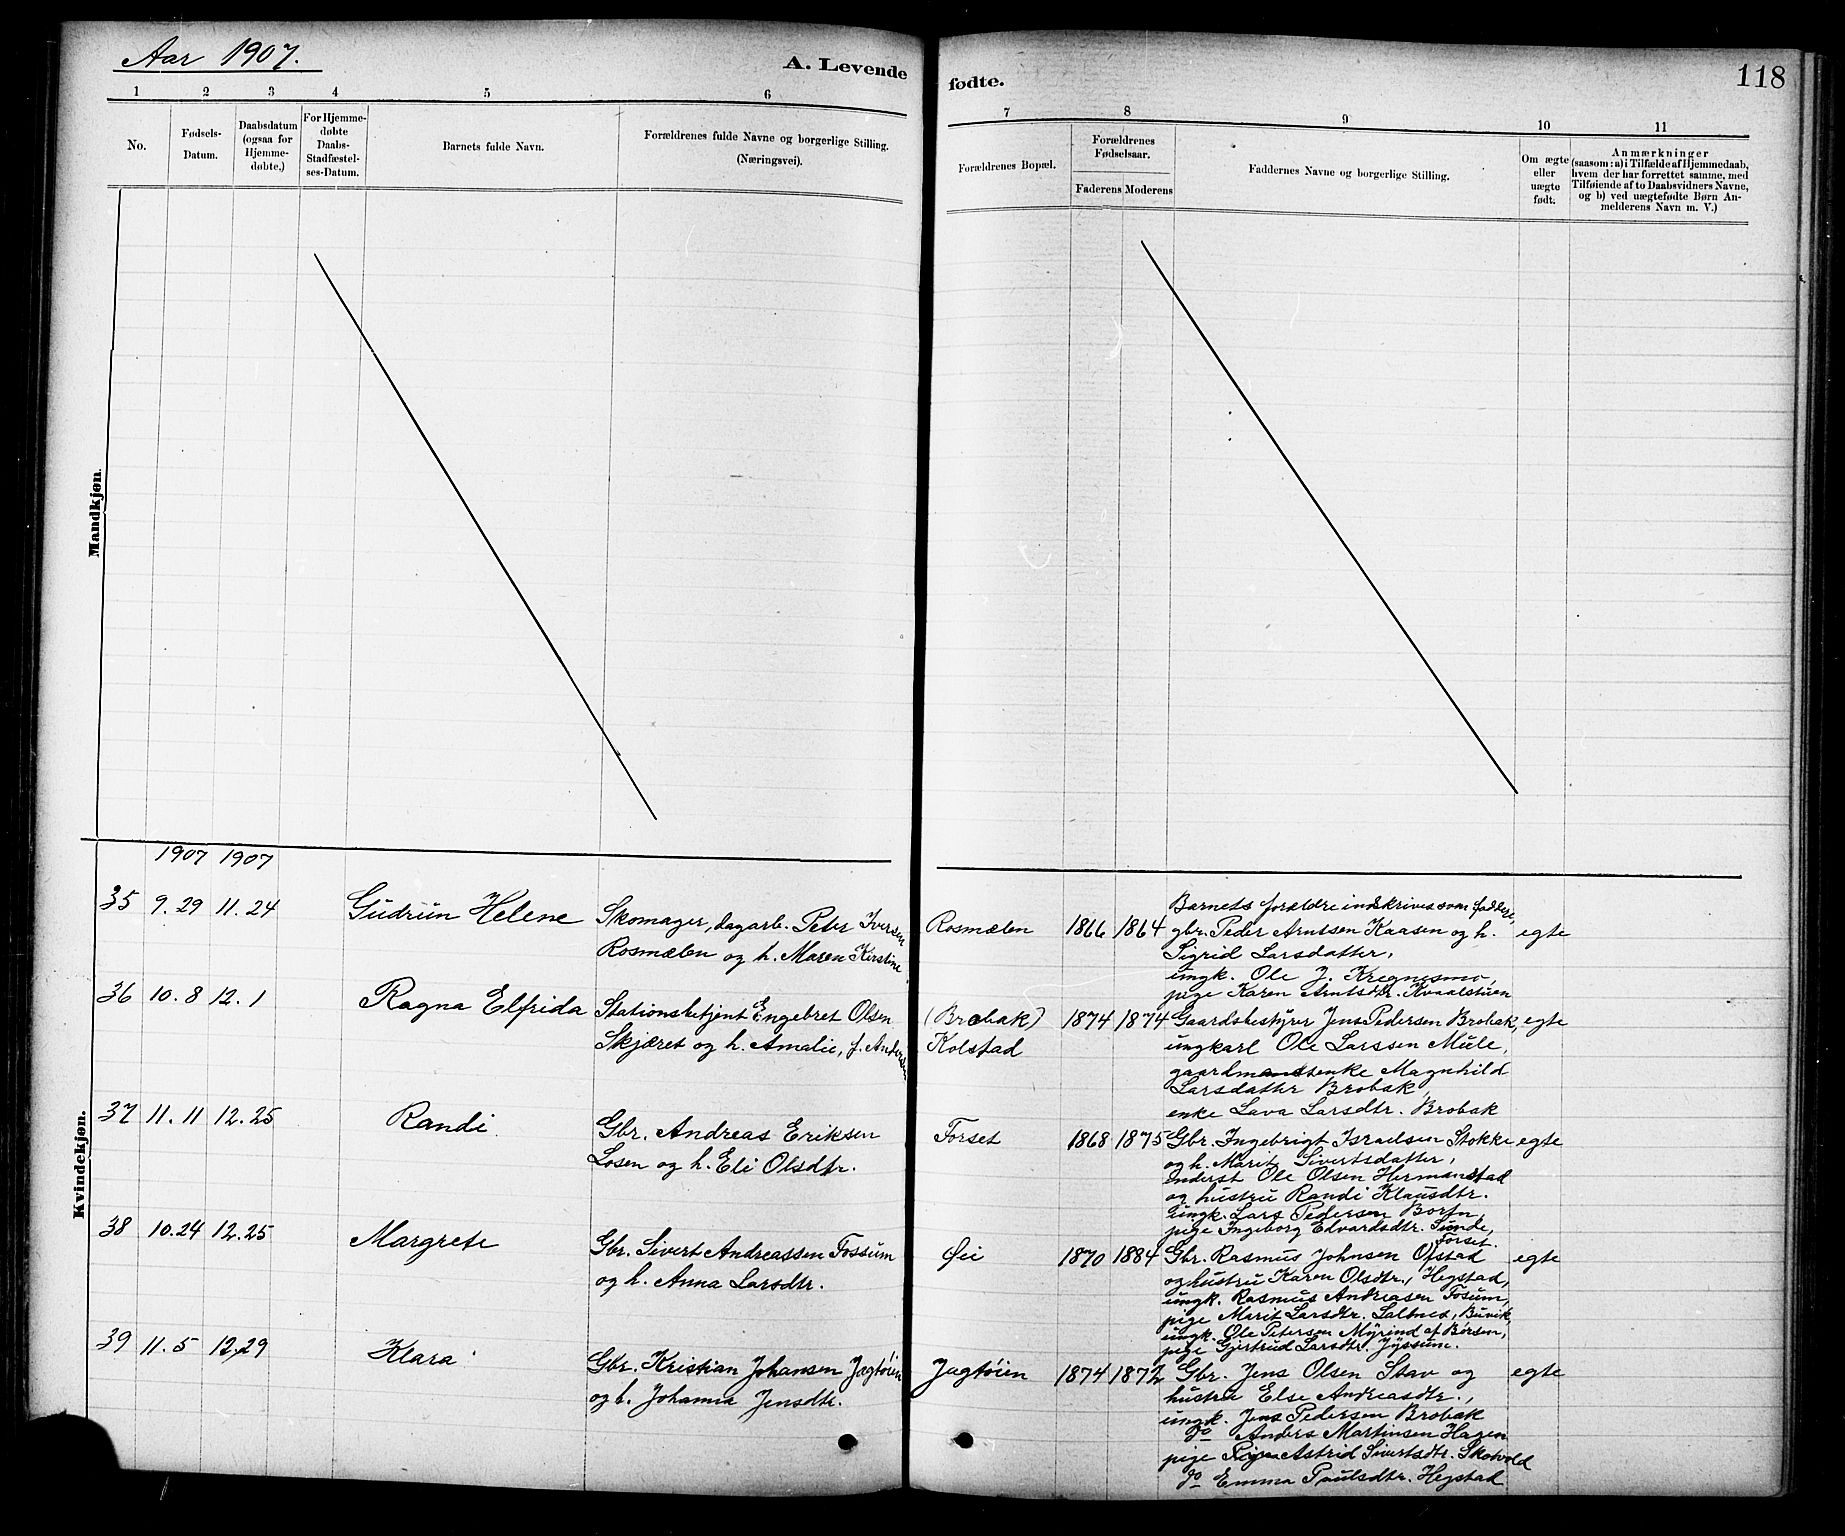 Aar 1907.
A. Levende
fødte.
118
1 2 3 4 5 6
7 8 9 10 11
No.
Fødsels-
Datum.
Daabsdatum
(ogsaa for
Hjemme-
døbte.)
For Hjemme-
døbte
Daabs-
Stadfæstel-
ses-Datum.
Barnets fulde Navn.
Forældrenes fulde Navne og borgerlige Stilling.
(Næringsvei).
Forældrenes Bopæl.
Forældrenes
Fødselsaar.
Faderens Moderens
Faddernes Navne og borgerlige Stilling.
Om ægte
eller
uægte
født.
Anmærkninger
(saasom: a) i Tilfælde af Hjemmedaab,
hvem der har forrettet samme, med
Tilføiende af to Daabsvidners Navne,
og b) ved uægtefødte Børn An-
melderens Navn m. V.)
Mandkjøn.
Kvindekjøn.
1907 1907
35 9.29 11.24 Gudrun Helene
Skomager, dagarb. Peter Iversen
Rosmælen og h. Maren Kirstine
Rosmælen 1866 1864
Barnets forældre indskrives som faddere
gbr. Peder Arntsen Kaasen og h. egte
Sigrid Larsdatter,
ungk. Ole J. Kregnesmo
pige Karen Arntsdtr. Kvaalstuen
36 10.8 12.1 Ragna Elfrida
Stationsbetjent Engebret Olsen
Skjæret og h. Amalie, f. Andersen
(Brobak) 1874 1874
Kolstad
Gaardsbestyrer Jens Pedersen Brobak, egte
ungkarl Ole Larssen Mule,
gaardmandsenke Magnhild
Larsdatter Brobak,
enke Lava Larsdtr. Brobak
37 11.11 12.25 Randi
Gbr. Andreas Eriksen
Losen og h. Eli Olsdtr.
Forset 1868 1875
Gbr. Ingebrigt Israelsen Stokke egte
og h. Marit Sivertsdatter,
inderst Ole Olsen Hermanstad
og hustru Randi Klausdtr.
ungk. Lars Pedersen Borten,
pige Ingeborg Edvardsdtr. Sunde,
Forset.
38 10.24 12.25 Margrete
Gbr. Sivert Andreassen Fossum
og h. Anna Larsdtr.
Øii 1870 1884
Gbr. Rasmus Johnsen Ofstad egte
og hustru Karen Olsdtr., Hegstad,
ungk. Rasmus Andreasen Fosum,
pige Marit Larsdtr. Saltnes, Buvik,
ungk. Ole Petersen Myrind af Børsen,
pige Gjertrud Larsdtr. Jyssum.
39 11.5 12.29 Klara
Gbr. Kristian Johansen Jagtøien
og h. Johanna Jensdtr.
Jagtøien 1874 1872
Gbr. Jens Olsen Stav og egte
hustru Else Andreasdtr.,
ungk. Jens Pedersen Brobak
do Anders Martinsen Hagen
pige Astrid Sivertsdtr. Skotvold
do Emma Paulsdtr. Hegstad